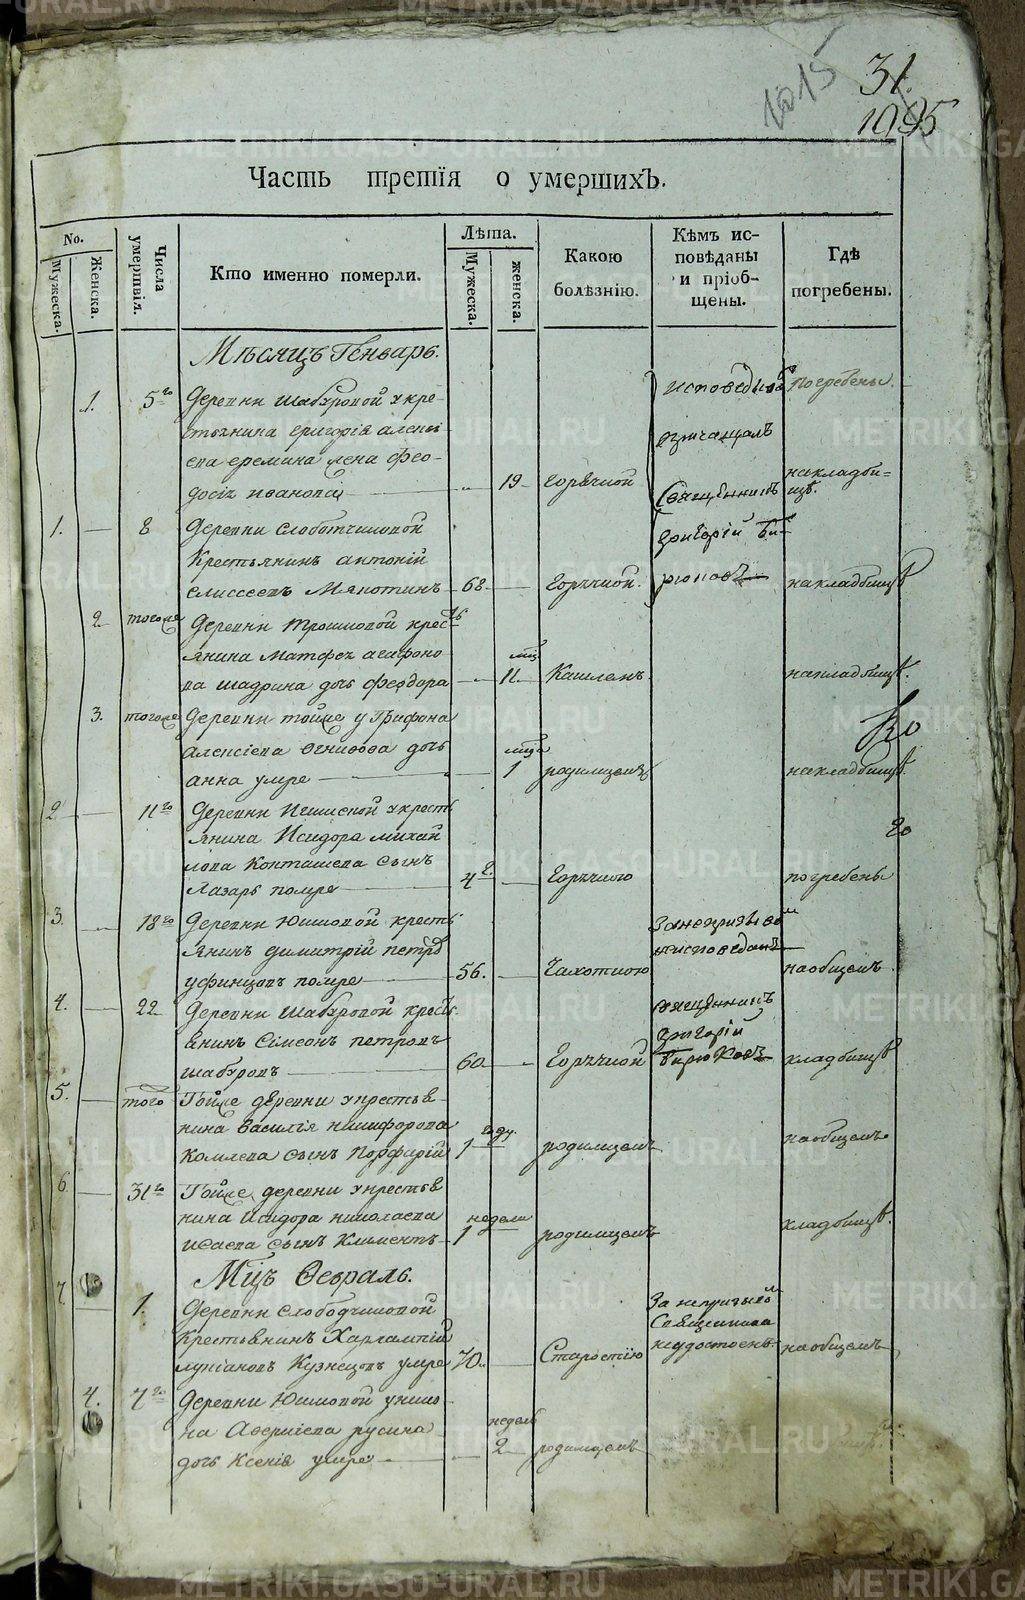 1015
31.
1095
Часть третія о умершихъ.
No.
Мужеска.
Женска.
Числа умертвія.
Кто именно померли.
Лѣта.
Мужеска.
женска.
Какою болѣзнію.
Кѣмъ исповѣданы и пріобщены.
Гдѣ погребены.
Мѣсяцъ Генварь.
1. 5го Деревни Шабуровой у кре-
стьянина Григорія Алексѣ-
ева Еремина жена Фео-
досія Иванова 19 Горячкой
Исповедывал
и причащалъ
Священникъ
Григорій Би-
рюковъ
погребены
на кладби-
щѣ.
1. 8 Деревни Слободчиковой
Крестьянинъ Антоній
Елисеевъ Мякотинъ 68 Горячкой. на кладбищѣ
2. тогоже Деревни Трошковой крестъ
янина Матфея Агафоно
ва Шадрина дочь Феодора мц. 11. Кашлемъ. на кладбищѣ.
3. тогоже Деревни тойже у Трифона
Алексіева дочь
Анна умре мца 1 родимцемъ на кладбищѣ.
Ко
2 11го Деревни у кресть
янина Исидора Михай
лова сынъ
Лазарь помре 4 г. Горячкою погребены
го
3. 18го Деревни Юшковой кресть
янинъ Димитрій Петровъ
Уфинцовъ помре 56. Чахоткою
не исповеданъ
на общемъ
4. 22 Деревни Шабуровой кресть
янинъ Сімеонъ Петровъ
Шабуровъ 60 Горячкой
священникъ
Григорій
Бирюковъ
кладбищѣ
5. того Тойже деревни у крестья
нина Василія Никифорова
Комлева сынъ Порфирій 1 году. родимцемъ на общемъ
6 31го Тойже деревни у крестья
нина Исидора Николаева
Исаева сынъ Климентъ 1 недели родимцемъ кладбищѣ.
Мцъ Февраль.
7. 1. Деревни Слободчиковой
Крестьянинъ Харлампій
Лукіановъ Кузнецовъ умре 70. Старостію
За неприездом
Священника
неудостоенъ.
на общемъ
4. 7го Деревни Юшковой у Нико-
на Аверкіева Русина
дочь Ксенія умре недель 2 родимцемъ
METRIKI.GASO-URAL.RU